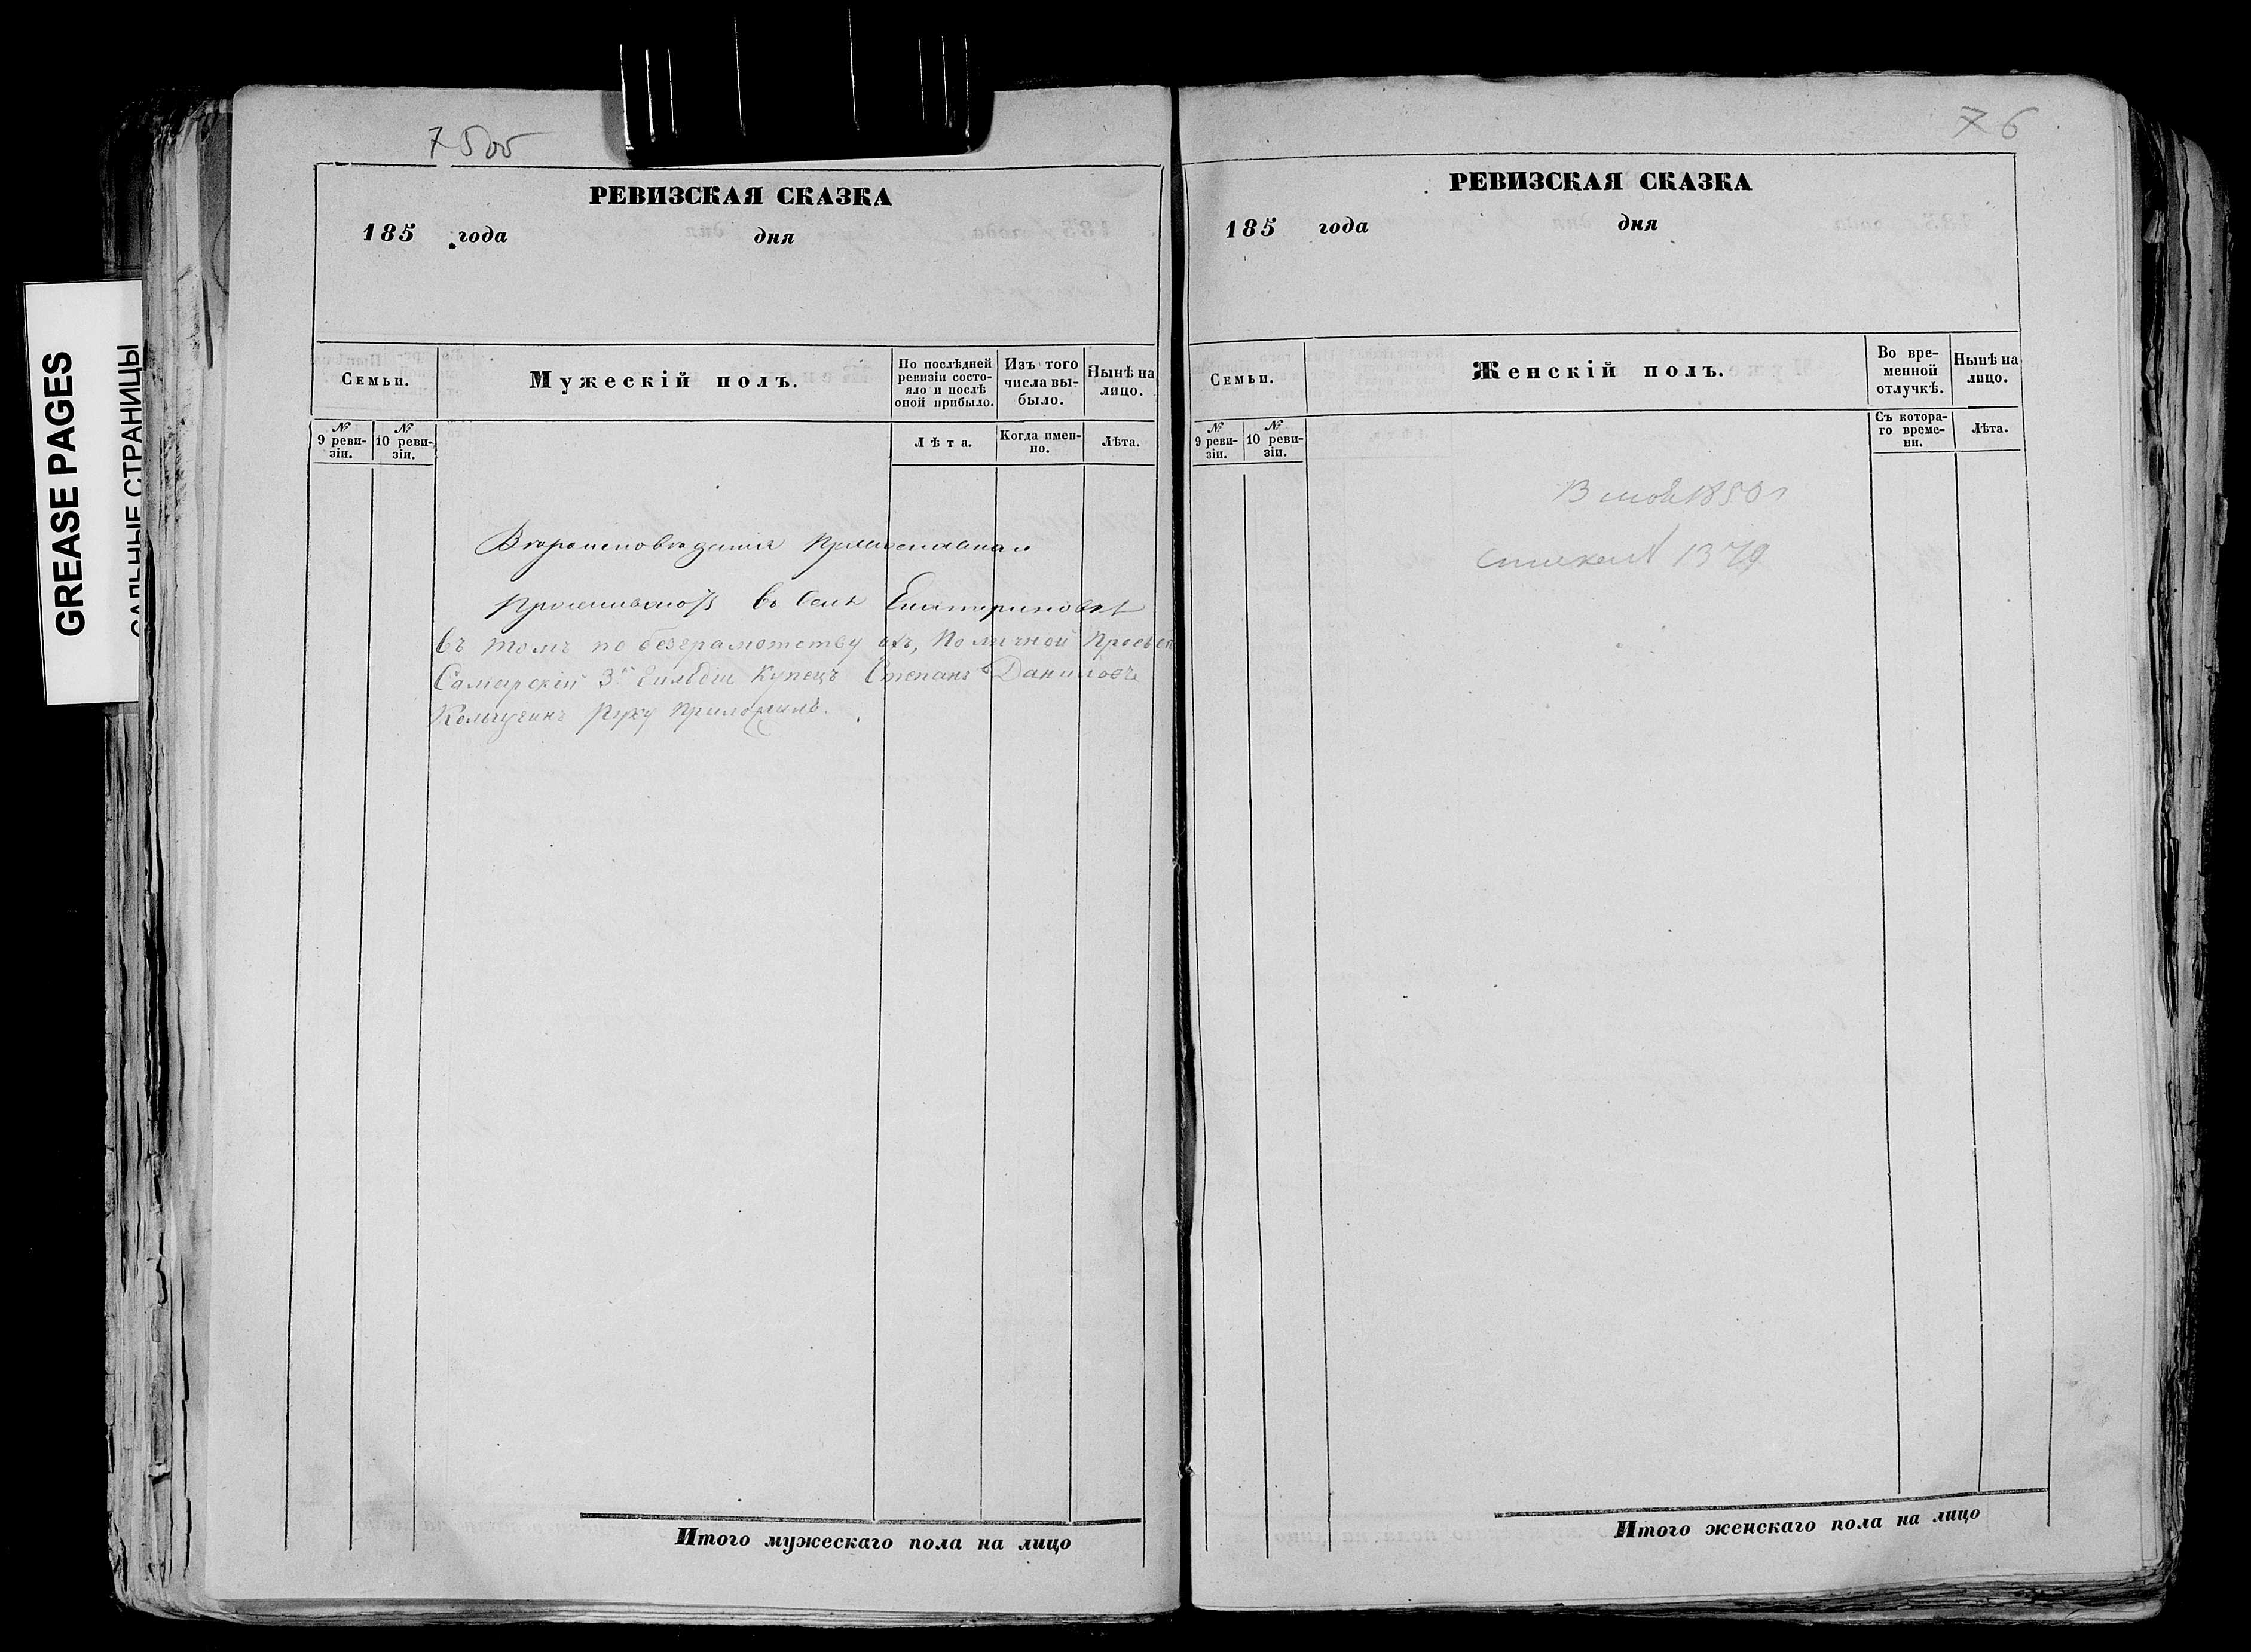 GREASE PAGES
САЛЬНЫЕ СТРАНИЦЫ
75об
РЕВИЗСКАЯ СКАЗКА
185 года дня
Семьи.
Мужескій полъ.
По послѣдней ревизіи состояло и послѣ оной прибыло.
Изъ того числа выбыло.
Нынѣ на лицо.
№ 9 ревизіи.
№ 10 ревизіи.
Лѣта.
Когда именно.
Лѣта.
Вѣроисповѣданія Православнаго
Проживаютъ въ Селѣ Екатериновкѣ
въ томъ по безграмотству ихъ, По личной Прозьбѣ
Самарскій 3й Гильдіи Купецъ Степанъ Даниловъ
руку приложилъ.
Итого мужескаго пола на лицо
76
РЕВИЗСКАЯ СКАЗКА
185 года дня
Семьи.
Женскій полъ.
Во временной отлучкѣ.
Нынѣ на лицо.
№ 9 ревизіи.
№ 10 ревизіи.
Съ котораго времени.
Лѣта.
1850
Итого женскаго пола на лицо